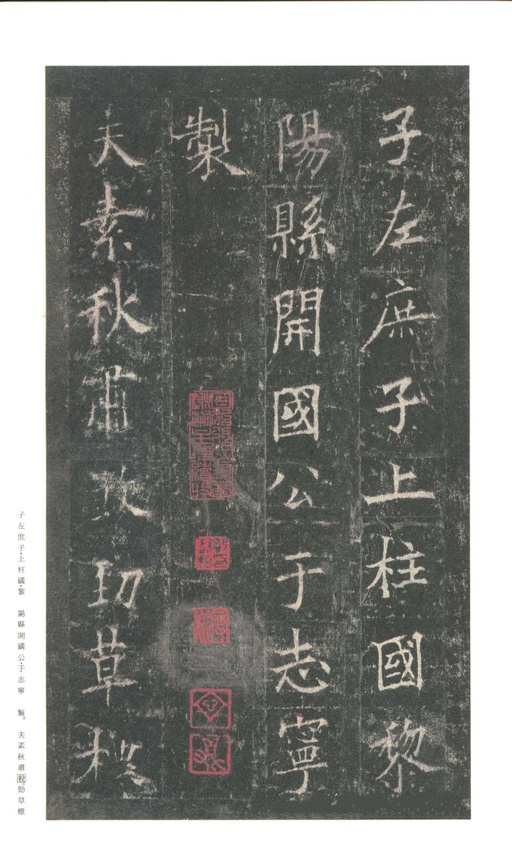 子左庶子上柱國黎
陽縣開國公于志寧
製
夫素秋肅　勁草標
子左庶子·上柱國·黎　陽縣開國公·于志寧　製。　夫素秋肅　勁草標